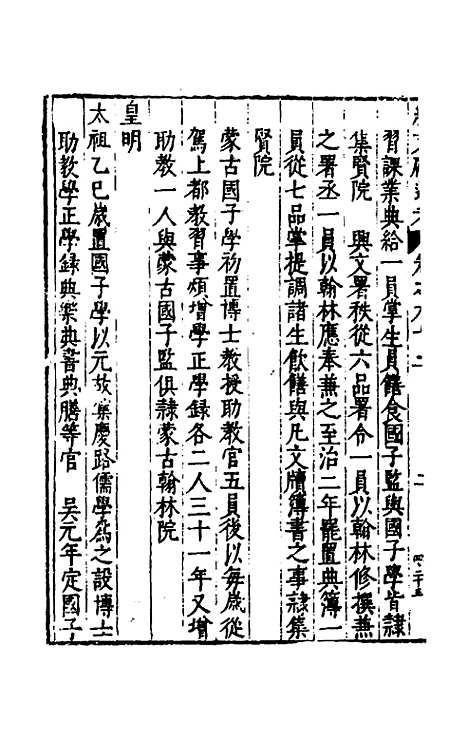 習課業典給一員掌生員饍食國子監與國子學皆隷
集賢院　興文署秩從六品署令一員以翰林修撰兼
之署丞一員以翰林應奉兼之至治二年罷置典簿一
員從七品掌提調諸生飲饍與凡文牘簿書之事隷集
賢院
蒙古國子學初置博士教授助教官五員後以每歲從
駕上都教習事煩增學正學録各二人三十一年又增
助教一人與蒙古國子監俱隷蒙古翰林院
皇明
太祖乙巳歲置國子學以元故集慶路儒學為之設博士
助教學正學録典樂典書典膳等官　吳元年定國子